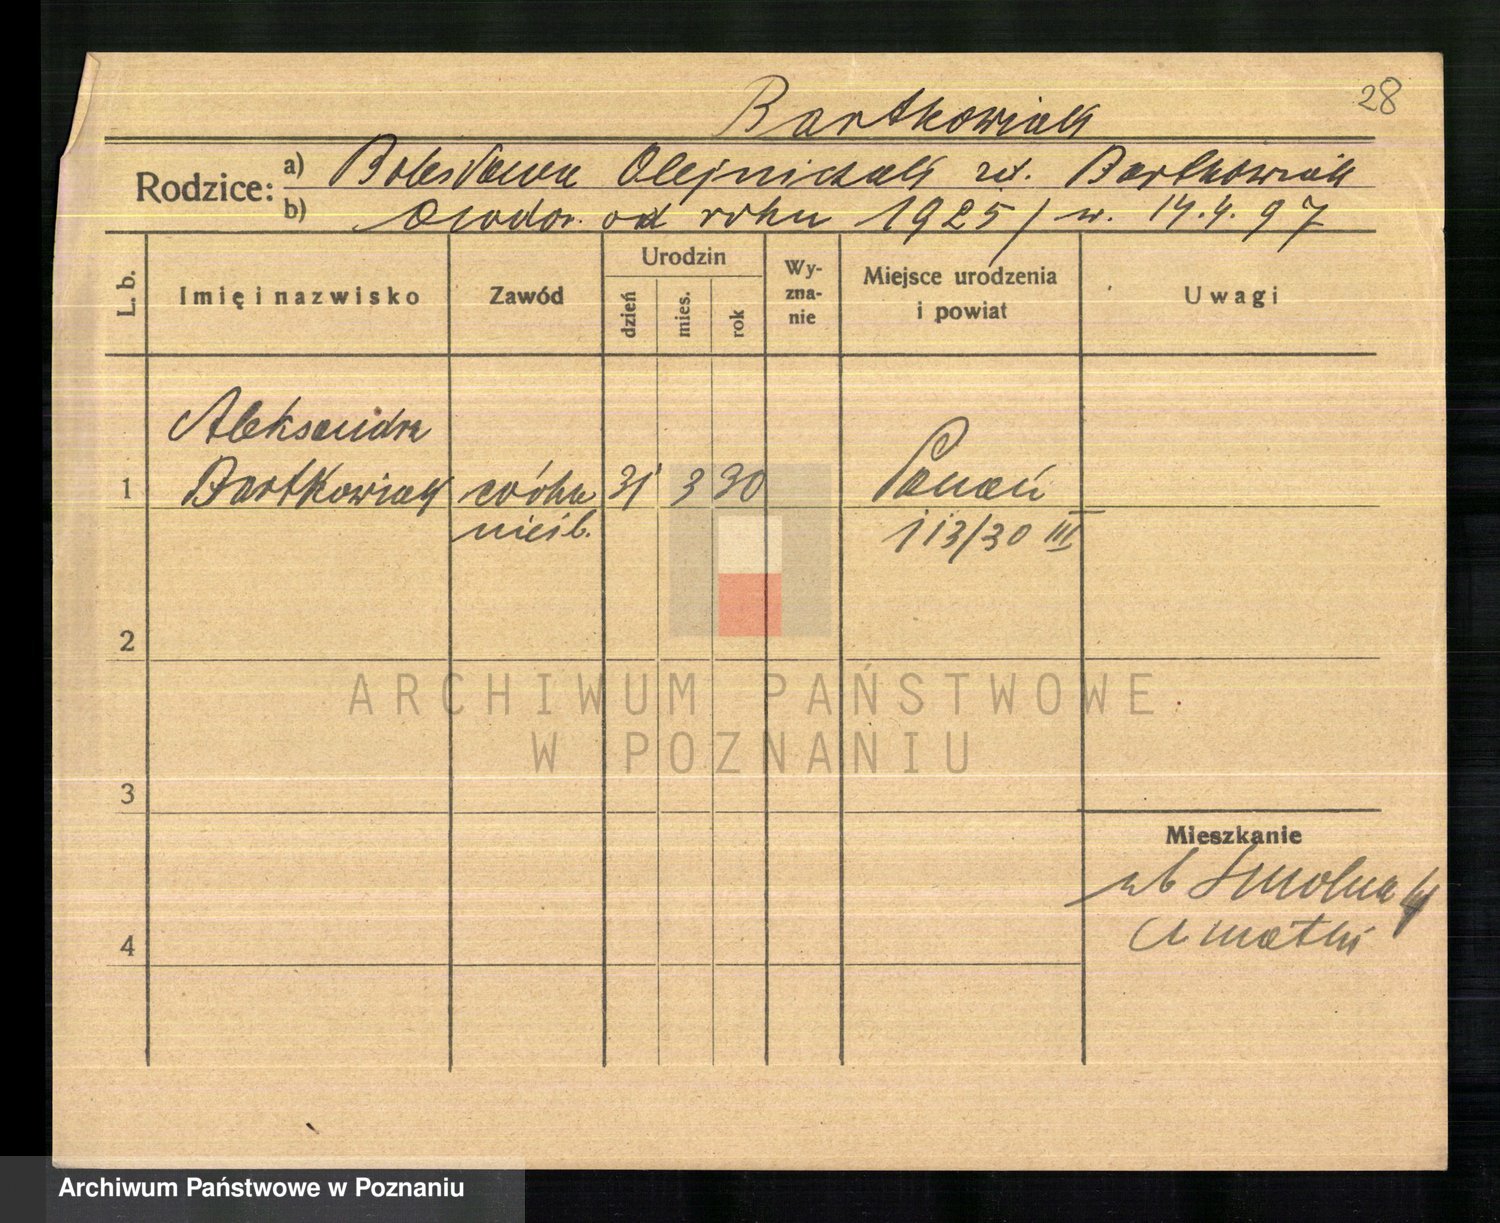 28
Bartkowiak
Rodzice: a) Bolesława Olejniczak zd. Bartkowiak
b) owdow. od roku 1925 / u. 14.4.97
L. b.
Imię i nazwisko
Zawód
Urodzin
dzień
mies.
rok
Wy-
zna-
nie
Miejsce urodzenia
i powiat
Uwagi
Aleksandra
1 Bartkowiak córka 31 3 30 Poznań
nieśl. 113/30 III
2
ARCHIWUM PAŃSTWOWE
W POZNANIU
3
Mieszkanie
Smolna
4 U matki
Archiwum Państwowe w Poznaniu